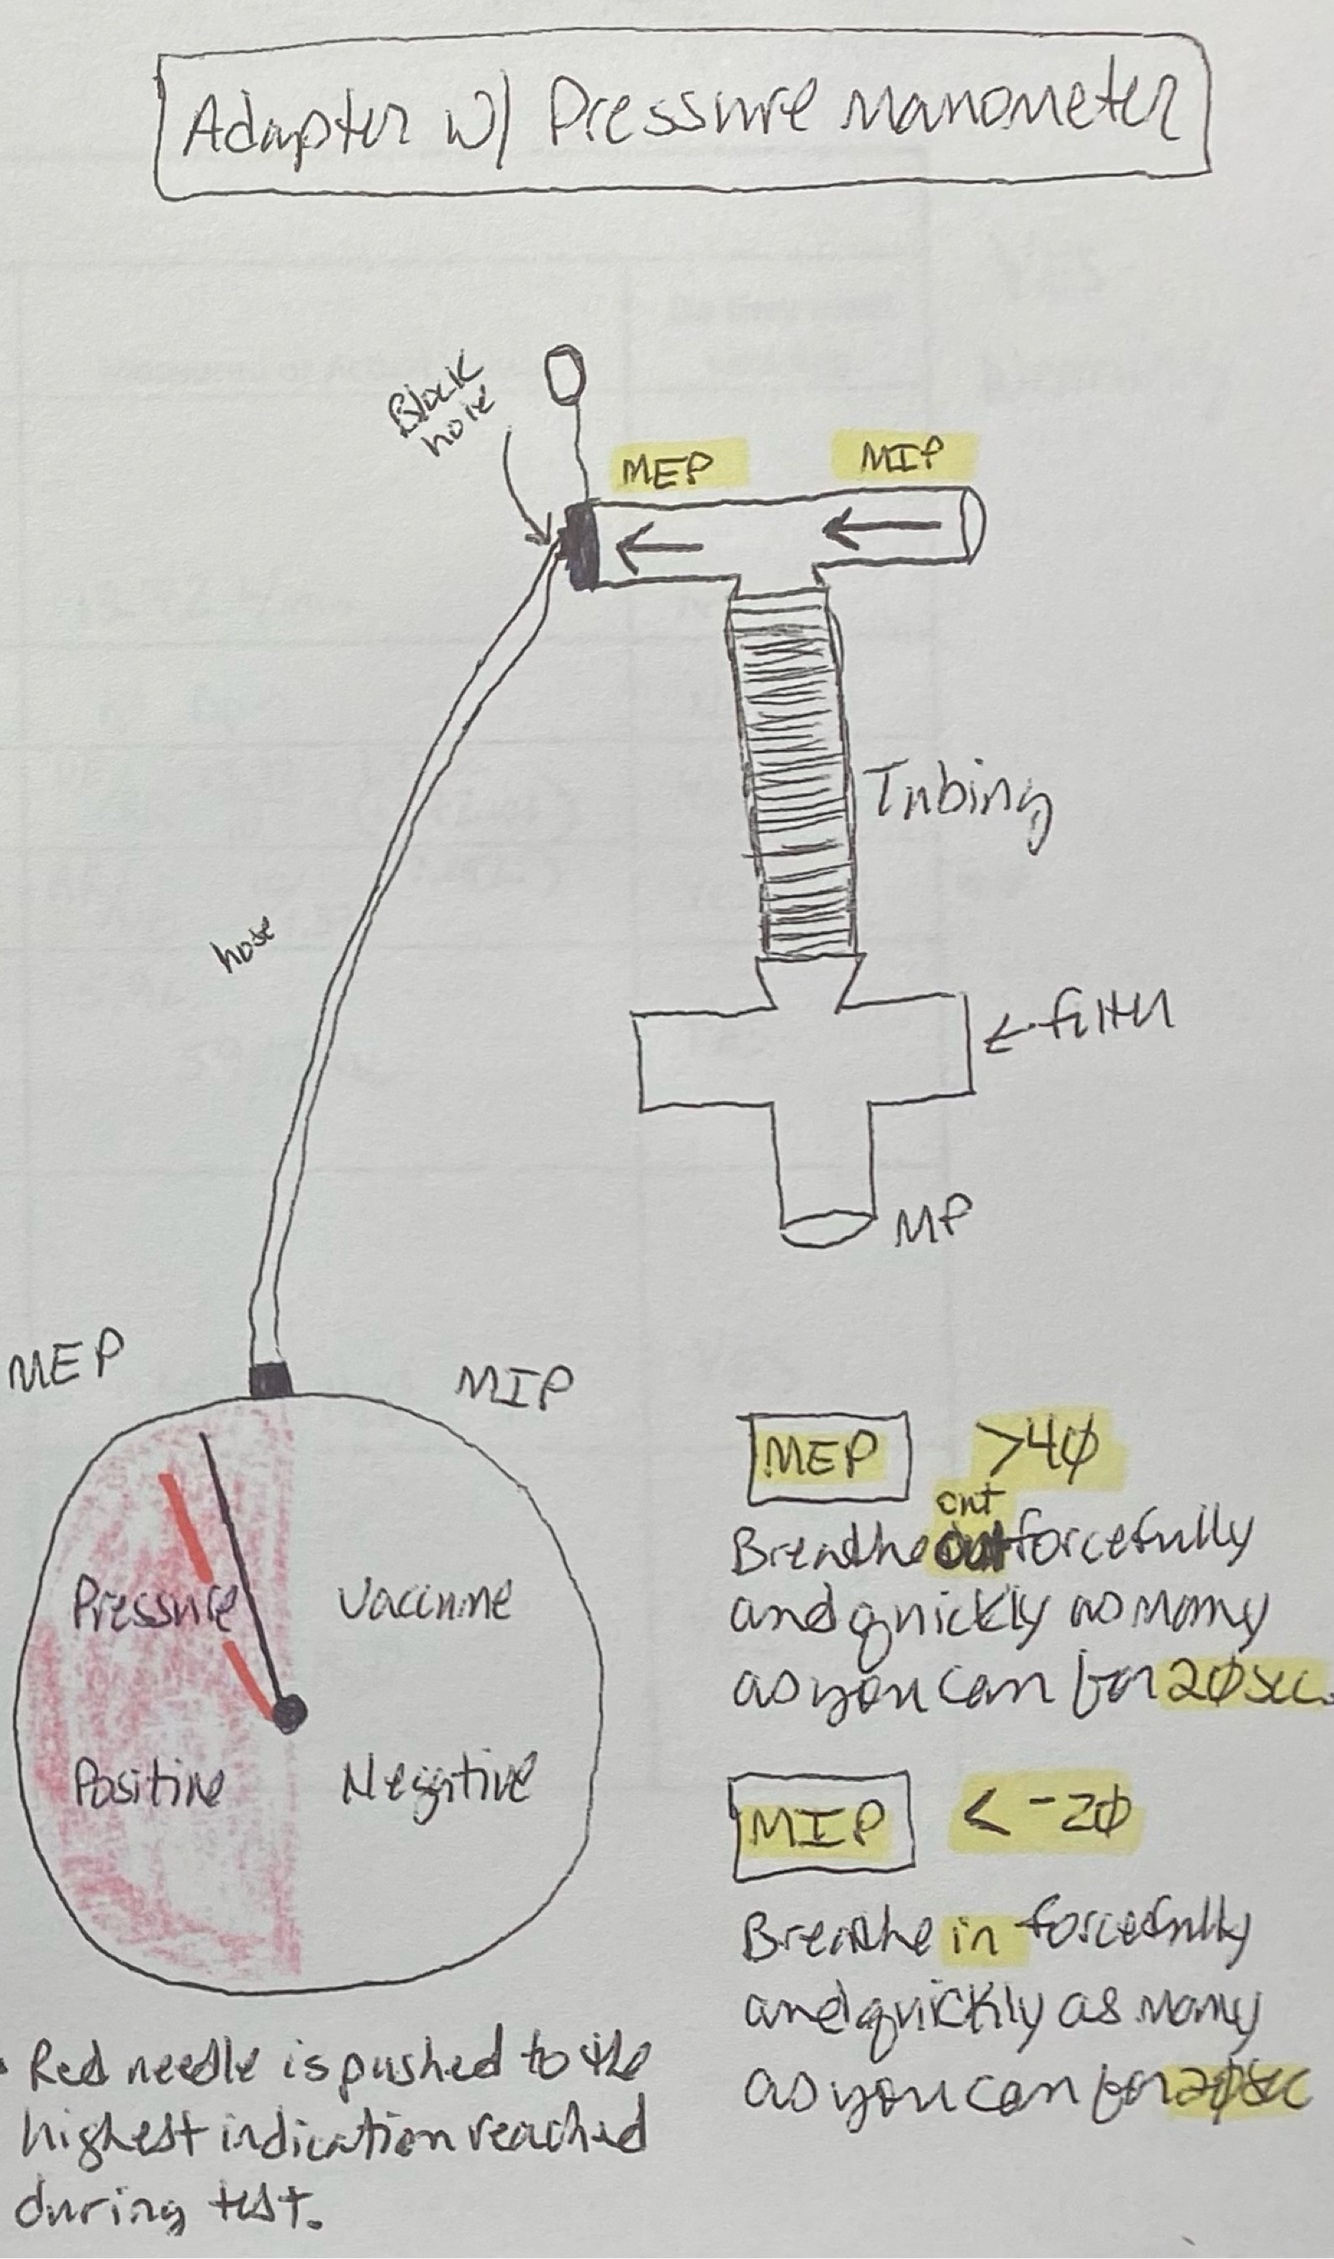 Adapter w/ Pressure manometer
Block
hole
MEP
MIP
Tubing
hose
filter
MP
MEP
MIP
Pressure
Vaccume
Positive
Negative
• Red needle is pushed to the
highest indication reached
during test.
MEP >40
out
Breathe out forcefully
and quickly as many
as you can for 20sec.
MIP < -20
Breathe in forcefully
and quickly as many
as you can for 20sec